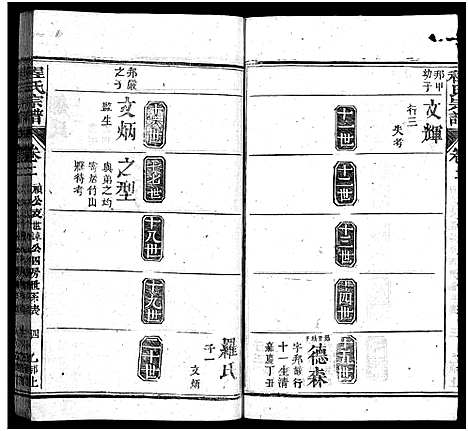 程氏宗譜
邦甲
幼子
文輝
行三
失考
十一世
十二世
十三世
十四世
十五世
德森
字邦諺行
十一生清
嘉慶丁丑
邦嚴
之子
文炳
監生
之型
與弟之均
寄居竹山
縣待考
十六世
十七世
十八世
十九世
二十世
羅氏
子一
文炳
程氏宗譜
卷二